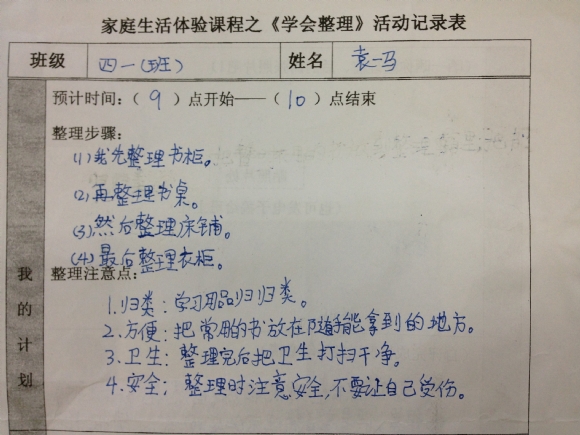 家庭生活体验课程之《学会整理》活动记录表
班级 四一(班) 姓名 袁一马
预计时间:( 9 )点开始——( 10 )点结束
整理步骤:
(1)我先整理书柜。
(2)再整理书桌。
(3)然后整理床铺。
(4)最后整理衣柜。
我的计划
整理注意点:
1.归类:学习用品归归类。
2.方便:把常用的书放在随手能拿到的地方。
3.卫生:整理完后把卫生打扫干净。
4.安全:整理时注意安全,不要让自己受伤。